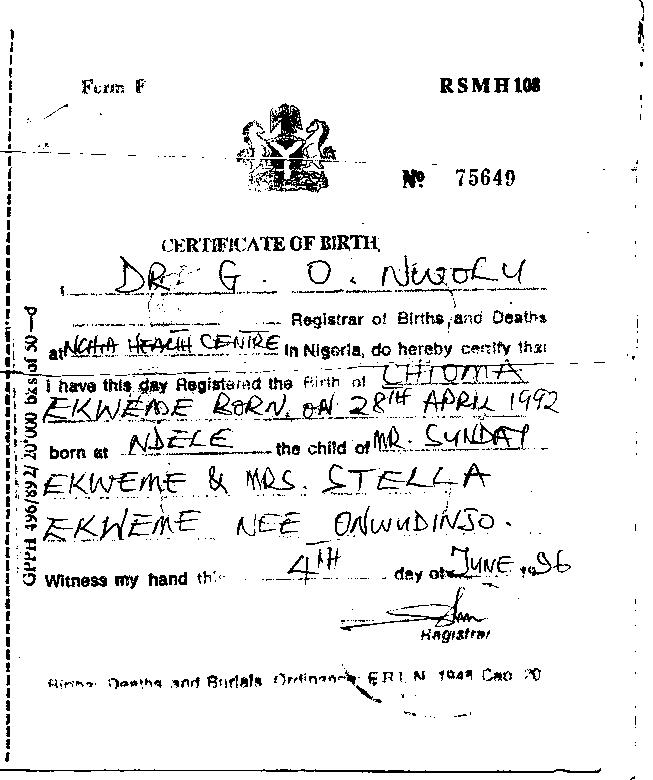 Form F
RSMH 108
No 75649
CERTIFICATE OF BIRTH
I, DR. G. O. NWOLU
Registrar of Births, and Deaths
at NCHA HEALTH CENTRE in Nigeria, do hereby certify that
I have this day Registered the Birth of CHIOMA
EKWEME BORN. ON 28TH APRIL 1992
born at NDELE the child of MR. SUNDAY
EKWEME & MRS. STELLA
EKWEME NEE ONWUDINJO.
Witness my hand this 4TH day of JUNE 1996
Registrar
Births, Deaths and Burials Ordinance 1948 Cap 20
GPPH 496/892/20'000 bxs of 50—d